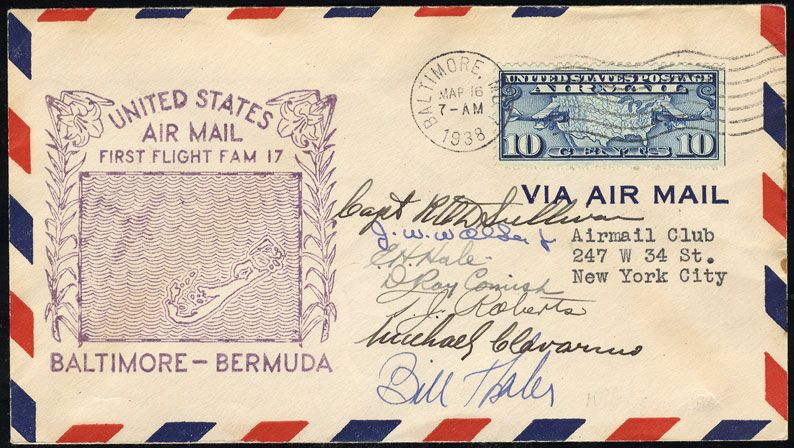 UNITED STATES
AIR MAIL
FIRST FLIGHT FAM 17
BALTIMORE - BERMUDA
BALTIMORE, MD.
MAR 16
7-AM
1938
UNITED STATES POSTAGE
AIR MAIL
10 CENTS 10
VIA AIR MAIL
Airmail Club
247 W 34 St.
New York City
Capt R.O.D. Sullivan
J. W. Walker Jr
E H Hale
D Ray Comish
T. J. Roberts
Michael
Bill Thaler